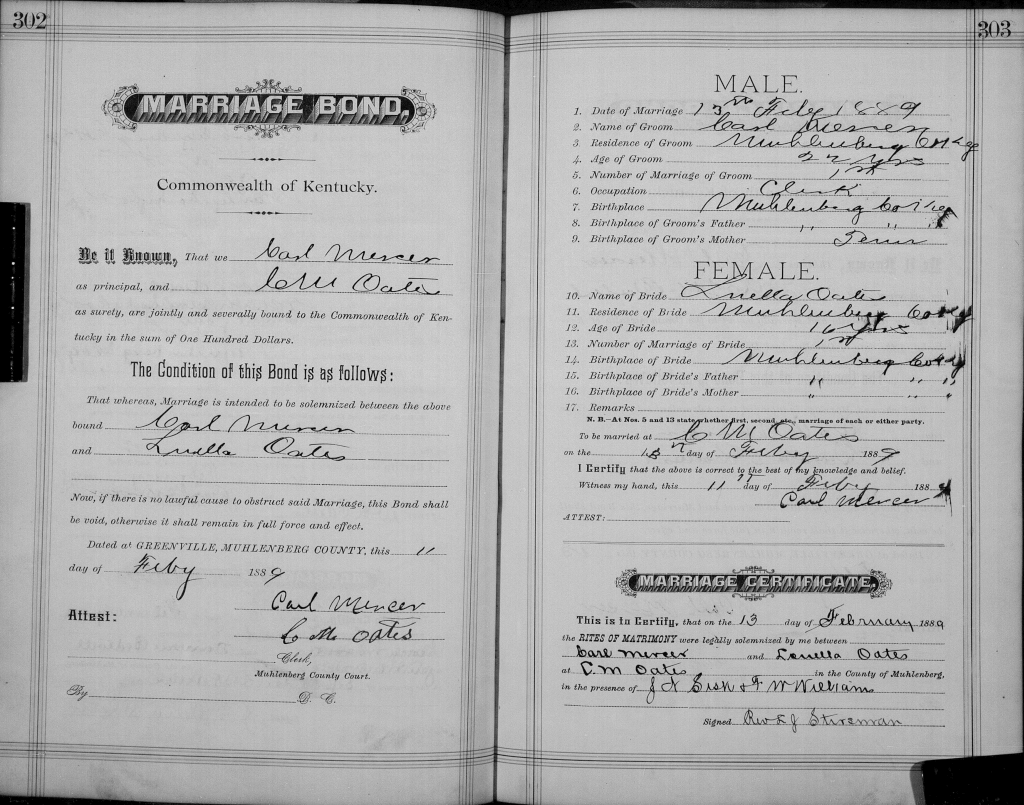 302
MARRIAGE BOND,
Commonwealth of Kentucky.
Be it Known, That we Carl Mercer
as principal, and C M Oates
as surety, are jointly and severally bound to the Commonwealth of Ken-
tucky in the sum of One Hundred Dollars.
The Condition of this Bond is as follows:
That whereas, Marriage is intended to be solemnized between the above
bound Carl Mercer
and Luella Oates
Now, if there is no lawful cause to obstruct said Marriage, this Bond shall
be void, otherwise it shall remain in full force and effect.
Dated at GREENVILLE, MUHLENBERG COUNTY, this 11
day of Feby 1889
Carl Mercer
Attest: C M Oates
Clerk,
Muhlenberg County Court.
By D. C.
303
MALE.
1. Date of Marriage 13th Feby 1889
2. Name of Groom Carl Mercer
3. Residence of Groom Muhlenberg Co Ky
4. Age of Groom 22 yrs
5. Number of Marriage of Groom 1st
6. Occupation Clerk
7. Birthplace Muhlenberg Co Ky
8. Birthplace of Groom's Father " " "
9. Birthplace of Groom's Mother Tenn
FEMALE.
10. Name of Bride Luella Oates
11. Residence of Bride Muhlenberg Co Ky
12. Age of Bride 16 yrs
13. Number of Marriage of Bride 1st
14. Birthplace of Bride Muhlenberg Co Ky
15. Birthplace of Bride's Father " " "
16. Birthplace of Bride's Mother " " "
17. Remarks
N. B.—At Nos. 5 and 13 state whether first, second, etc., marriage of each or either party.
To be married at C M Oates
on the 13 day of Feby 1889
I Certify that the above is correct to the best of my knowledge and belief.
Witness my hand, this 11 day of Feby 188
Carl Mercer
ATTEST:
MARRIAGE CERTIFICATE.
This is to Certify, that on the 13 day of February 1889
the RITES OF MATRIMONY were legally solemnized by me between
Carl Mercer and Louella Oates
at C. M Oates in the County of Muhlenberg,
in the presence of J N Sisk & F W Williams
Signed Rev J Stireman